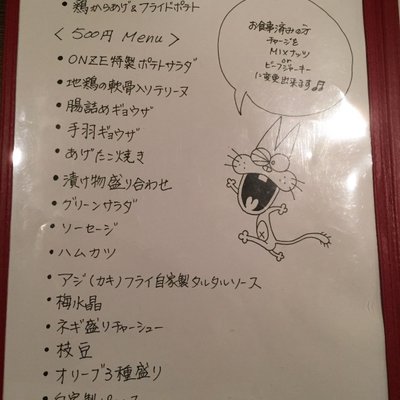 • 鶏からあげ&フライドポテト
< 500円 Menu >
• ONZE特製ポテトサラダ
• 地鶏の軟骨入りテリーヌ
• 腸詰めギョウザ
• 手羽ギョウザ
• あげたこ焼き
• 漬け物盛り合わせ
• グリーンサラダ
• ソーセージ
• ハムカツ
• アジ(カキ)フライ自家製タルタルソース
• 梅水晶
• ネギ盛りチャーシュー
• 枝豆
• オリーブ3種盛り
お食事済みの方
チャージを
MIXナッツ
or
ビーフジャーキー
に変更出来るす♫